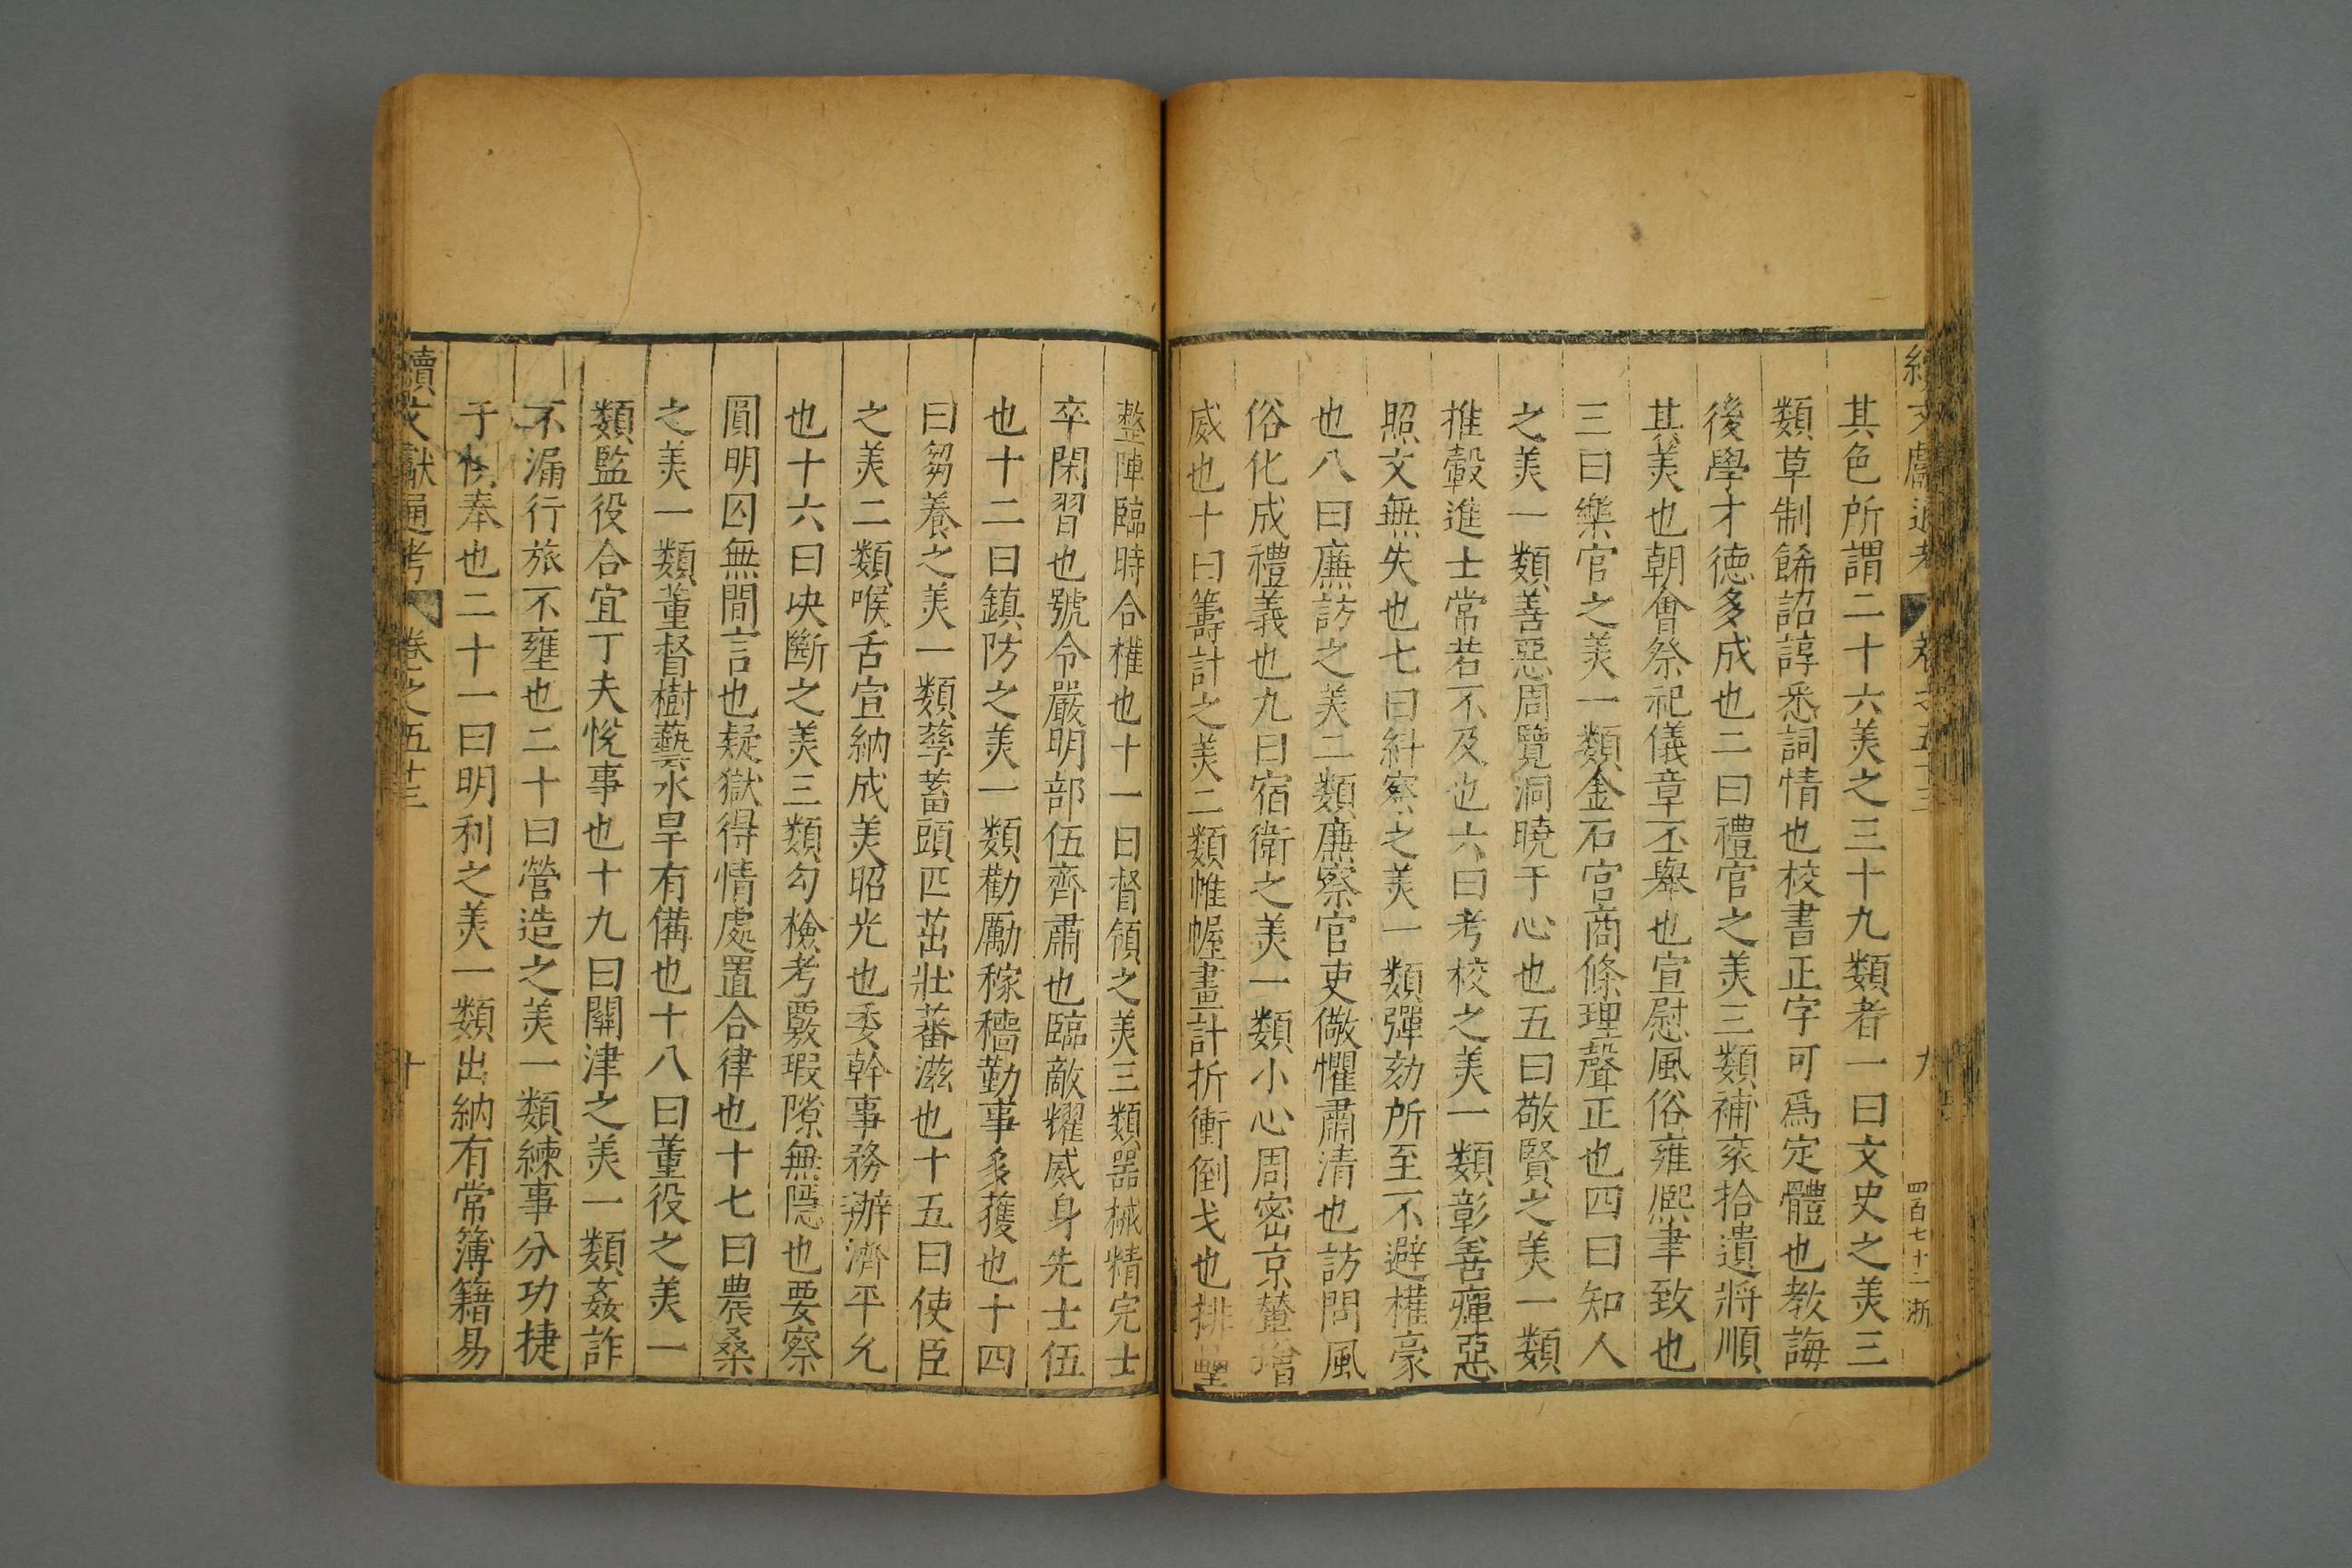 續文獻通考 卷之五十三 九 四百七十二 浙
其色所謂二十六美之三十九類者一曰文史之美三
類草制餙詔諄悉詞情也校書正字可爲定體也教誨
後學才德多成也二曰禮官之美三類補衮拾遺將順
其美也朝會祭祀儀章丕舉也宣慰風俗雍熈聿致也
三曰樂官之美一類金石宫商條理聲正也四曰知人
之美一類善惡周覽洞曉于心也五曰敬賢之美一類
推轂進士常若不及也六曰考校之美一類彰善癉惡
照文無失也七曰糾察之美一類彈劾所至不避權豪
也八曰廉訪之美二類廉察官吏儆懼肅清也訪問風
俗化成禮義也九曰宿衛之美一類小心周密京輦增
威也十曰籌計之美二類帷幄畫計折衝倒戈也排壘
整陣臨時合權也十一曰督領之美三類器械精完士
卒閑習也號令嚴明部伍齊肅也臨敵耀威身先士伍
也十二曰鎮防之美一類勸勵稼穡勤事多獲也十四
曰芻養之美一類孳蓄頭匹茁壯蕃滋也十五曰使臣
之美二類喉舌宣納成美昭光也委幹事務辦濟平允
也十六曰决斷之美三類勾檢考覈瑕隙無隱也要察
圓明囚無間言也疑獄得情處置合律也十七曰農桑
之美一類董督樹藝水旱有備也十八曰董役之美一
類監役合宜丁夫悅事也十九曰關津之美一類姦詐
不漏行旅不壅也二十曰營造之美一類練事分功捷
于供奉也二十一曰明利之美一類出納有常簿籍易
續文獻通考 卷之五十三 十